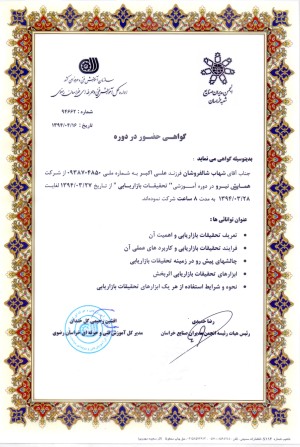 انجمن مدیران صنایع
خراسان
سازمان آموزش فنی و حرفه‌ای کشور
شماره : ۹۴۶۶۲
تاریخ : ۱۳۹۴/۰۴/۱۶
گواهی حضور در دوره
بدینوسیله گواهی می نماید
جناب آقای شهاب شالفروشان فرزند علی اکبر به شماره ملی ۰۹۳۸۷۰۴۸۵۰ از شرکت
همایش نیرو در دوره آموزشی " تحقیقات بازاریابی " از تاریخ ۱۳۹۴/۰۳/۲۷ لغایت
۱۳۹۴/۰۳/۲۸ به مدت ۸ ساعت شرکت نموده‌اند.
عنوان توانائی ها :
تعریف تحقیقات بازاریابی و اهمیت آن
فرایند تحقیقات بازاریابی و کاربرد های عملی آن
چالشهای پیش رو در زمینه تحقیقات بازاریابی
ابزارهای تحقیقات بازاریابی اثربخش
نحوه و شرایط استفاده از هر یک ابزارهای تحقیقات بازاریابی
رضا حمیدی
رئیس هیات رئیسه انجمن مدیران صنایع خراسان
افشین رحیمی گل خندان
مدیر کل آموزش فنی و حرفه ای خراسان رضوی